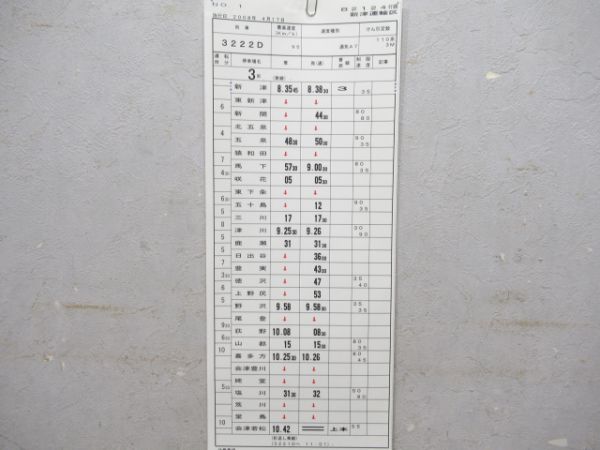 NO 1 82124行路
施行日 2008年 4月17日 新津運輸区
列車 最高速度(Km/h) 速度種別 けん引定数
3222D 95 通気A7 110系 3M
運転時分 停車場名 着 発(通) 着発線 制限速度 記事
3両
新津 8.35 45 8.38 30 3 35
東新津 ↓ ↓
6 新関 ↓ 44 30 80 60
北五泉 ↓ ↓
4 五泉 48 30 50 00 90 35
猿和田 ↓ ↓
5 馬下 57 30 9.00 30
4 咲花 05 05 30
東下条 ↓ ↓
五十島 ↓ 12 90 35
三川 17 17 30
津川 9.25 30 9.26 30 90
5 鹿瀬 31 31 30
5 日出谷 ↓ 36
豊実 ↓ 43
徳沢 ↓ 47 35 40
上野尻 ↓ 53
5 野沢 9.58 9.58 30 35
尾登 ↓ ↓
9 荻野 10.08 08
6 山都 15 15 80 35
10 喜多方 10.25 30 10.26 80 45
会津豊川 ↓ ↓
姥堂 ↓ ↓
5 塩川 31 30 32 50 80
笈川 ↓ ↓
堂島 ↓ ↓
10 会津若松 10.42 上本 55